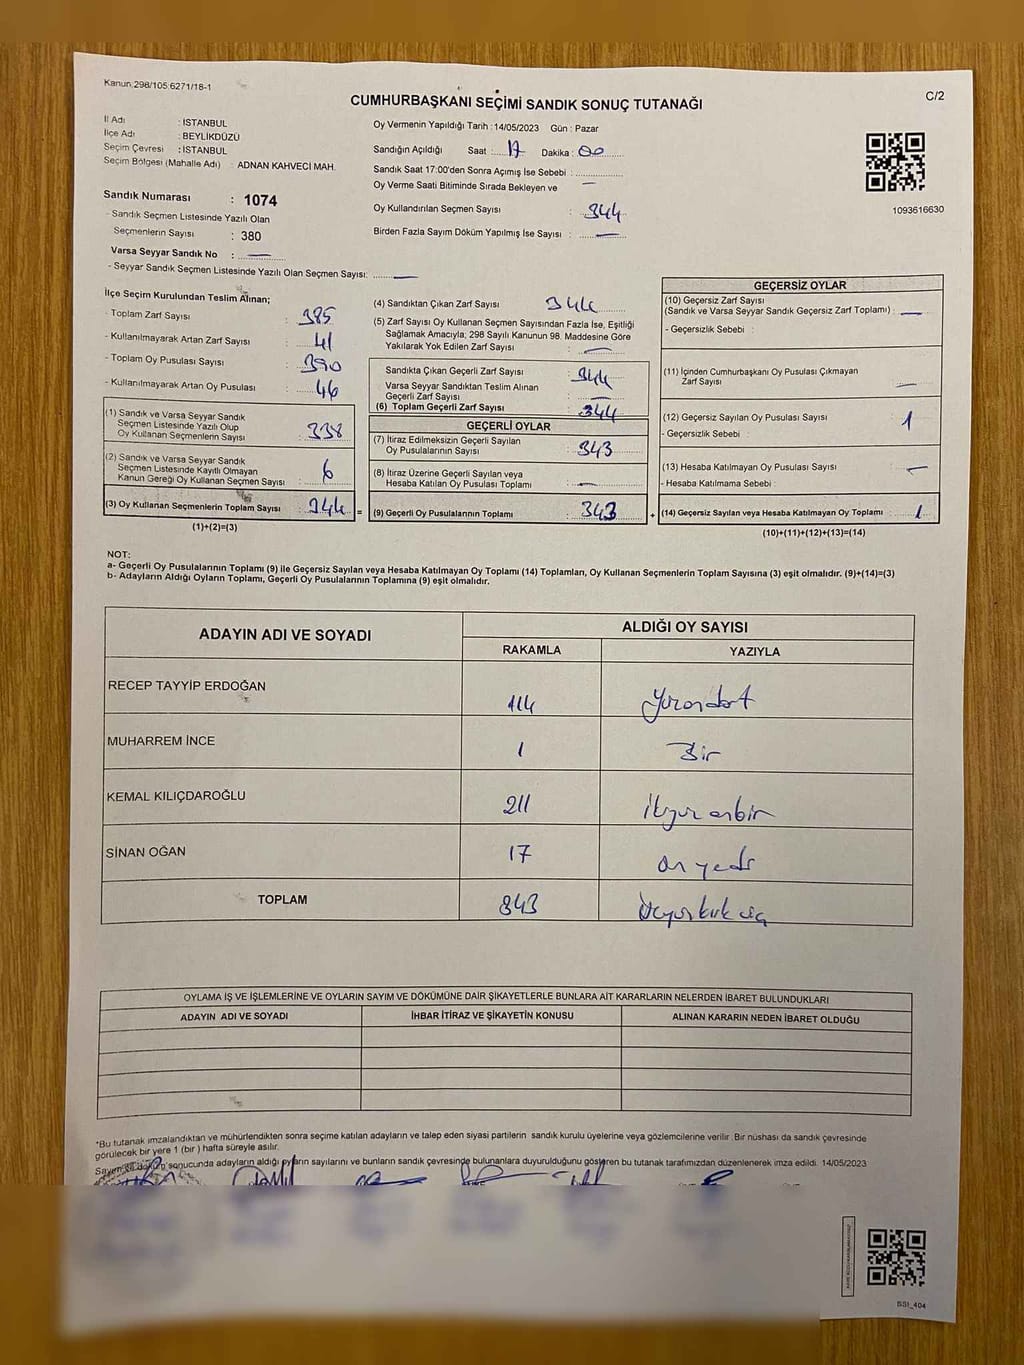 Kanun:298/105:6271/18-1
C/2
CUMHURBAŞKANI SEÇİMİ SANDIK SONUÇ TUTANAĞI
İl Adı : İSTANBUL
İlçe Adı : BEYLİKDÜZÜ
Seçim Çevresi : İSTANBUL
Seçim Bölgesi (Mahalle Adı) : ADNAN KAHVECİ MAH.
Sandık Numarası : 1074
- Sandık Seçmen Listesinde Yazılı Olan
Seçmenlerin Sayısı : 380
Varsa Seyyar Sandık No : —
- Seyyar Sandık Seçmen Listesinde Yazılı Olan Seçmen Sayısı: —
Oy Vermenin Yapıldığı Tarih : 14/05/2023 Gün : Pazar
Sandığın Açıldığı Saat : 17 Dakika : 00
Sandık Saat 17:00'den Sonra Açımış İse Sebebi :
Oy Verme Saati Bitiminde Sırada Bekleyen ve —
Oy Kullandırılan Seçmen Sayısı : 344
Birden Fazla Sayım Döküm Yapılmış İse Sayısı : —
1093616630
İlçe Seçim Kurulundan Teslim Alınan;
- Toplam Zarf Sayısı : 385
- Kullanılmayarak Artan Zarf Sayısı : 41
- Toplam Oy Pusulası Sayısı : 390
- Kullanılmayarak Artan Oy Pusulası : 46
(1) Sandık ve Varsa Seyyar Sandık
Seçmen Listesinde Yazılı Olup
Oy Kullanan Seçmenlerin Sayısı : 338
(2) Sandık ve Varsa Seyyar Sandık
Seçmen Listesinde Kayıtlı Olmayan
Kanun Gereği Oy Kullanan Seçmen Sayısı : 6
(3) Oy Kullanan Seçmenlerin Toplam Sayısı : 344 =
(1)+(2)=(3)
(4) Sandıktan Çıkan Zarf Sayısı : 344
(5) Zarf Sayısı Oy Kullanan Seçmen Sayısından Fazla İse, Eşitliği
Sağlamak Amacıyla; 298 Sayılı Kanunun 98. Maddesine Göre
Yakılarak Yok Edilen Zarf Sayısı : —
Sandıkta Çıkan Geçerli Zarf Sayısı : 344
Varsa Seyyar Sandıktan Teslim Alınan
Geçerli Zarf Sayısı : —
(6) Toplam Geçerli Zarf Sayısı : 344
GEÇERLİ OYLAR
(7) İtiraz Edilmeksizin Geçerli Sayılan
Oy Pusulalarının Sayısı : 343
(8) İtiraz Üzerine Geçerli Sayılan veya
Hesaba Katılan Oy Pusulası Toplamı : —
(9) Geçerli Oy Pusulalarının Toplamı : 343 +
GEÇERSİZ OYLAR
(10) Geçersiz Zarf Sayısı
(Sandık ve Varsa Seyyar Sandık Geçersiz Zarf Toplamı) : —
- Geçersizlik Sebebi :
(11) İçinden Cumhurbaşkanı Oy Pusulası Çıkmayan
Zarf Sayısı : —
(12) Geçersiz Sayılan Oy Pusulası Sayısı : 1
- Geçersizlik Sebebi :
(13) Hesaba Katılmayan Oy Pusulası Sayısı : —
- Hesaba Katılmama Sebebi :
(14) Geçersiz Sayılan veya Hesaba Katılmayan Oy Toplamı : 1
(10)+(11)+(12)+(13)=(14)
NOT:
a- Geçerli Oy Pusulalarının Toplamı (9) ile Geçersiz Sayılan veya Hesaba Katılmayan Oy Toplamı (14) Toplamları, Oy Kullanan Seçmenlerin Toplam Sayısına (3) eşit olmalıdır. (9)+(14)=(3)
b- Adayların Aldığı Oyların Toplamı, Geçerli Oy Pusulalarının Toplamına (9) eşit olmalıdır.
ADAYIN ADI VE SOYADI
ALDIĞI OY SAYISI
RAKAMLA YAZIYLA
RECEP TAYYİP ERDOĞAN 114 Yüzondört
MUHARREM İNCE 1 Bir
KEMAL KILIÇDAROĞLU 211 İkiyüz onbir
SİNAN OĞAN 17 on yedi
TOPLAM 343 Üçyüzkırk üç
OYLAMA İŞ VE İŞLEMLERİNE VE OYLARIN SAYIM VE DÖKÜMÜNE DAİR ŞİKAYETLERLE BUNLARA AİT KARARLARIN NELERDEN İBARET BULUNDUKLARI
ADAYIN ADI VE SOYADI İHBAR İTİRAZ VE ŞİKAYETİN KONUSU ALINAN KARARIN NEDEN İBARET OLDUĞU
*Bu tutanak imzalandıktan ve mühürlendikten sonra seçime katılan adayların ve talep eden siyasi partilerin sandık kurulu üyelerine veya gözlemcilerine verilir. Bir nüshası da sandık çevresinde
görülecek bir yere 1 (bir) hafta süreyle asılır.
Sayım ve döküm sonucunda adayların aldığı oyların sayılarını ve bunların sandık çevresinde bulunanlara duyurulduğunu gösteren bu tutanak tarafımızdan düzenlenerek imza edildi. 14/05/2023
SSI_404